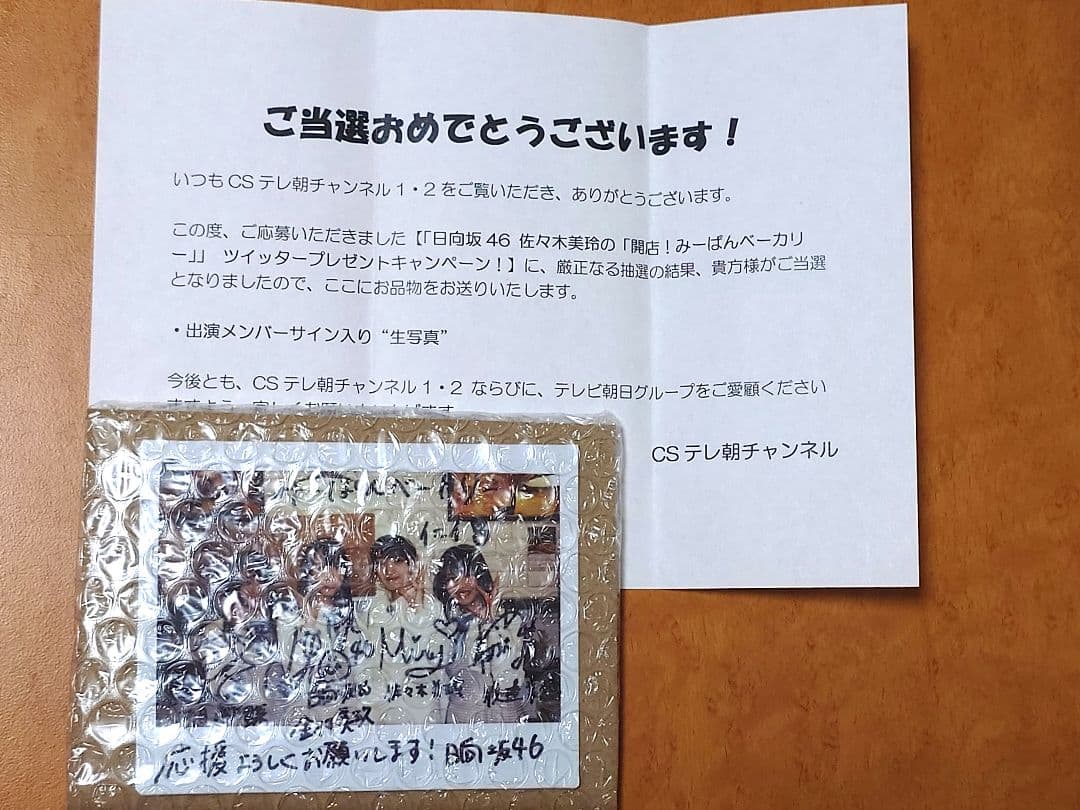 ご当選おめでとうございます！
いつもCSテレ朝チャンネル1・2をご覧いただき、ありがとうございます。
この度、ご応募いただきました【「日向坂46 佐々木美玲の「開店！みーぱんベーカリ
ー」」 ツイッタープレゼントキャンペーン！】に、厳正なる抽選の結果、貴方様がご当選
となりましたので、ここにお品物をお送りいたします。
・出演メンバーサイン入り“生写真”
今後とも、CSテレ朝チャンネル1・2 ならびに、テレビ朝日グループをご愛顧ください
CSテレ朝チャンネル
ぱんベーカリー
佐々木
応援よろしくお願いします！日向坂46